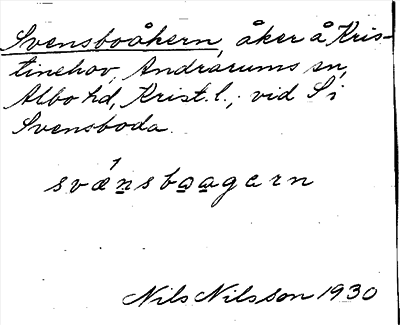 Svensboåkern, åker å Kris-
tinehov, Andrarums sn,
Albo hd, Krist. l.; vid S i
Svensboda.
svǽnsbaagarn
Nils Nilsson 1930